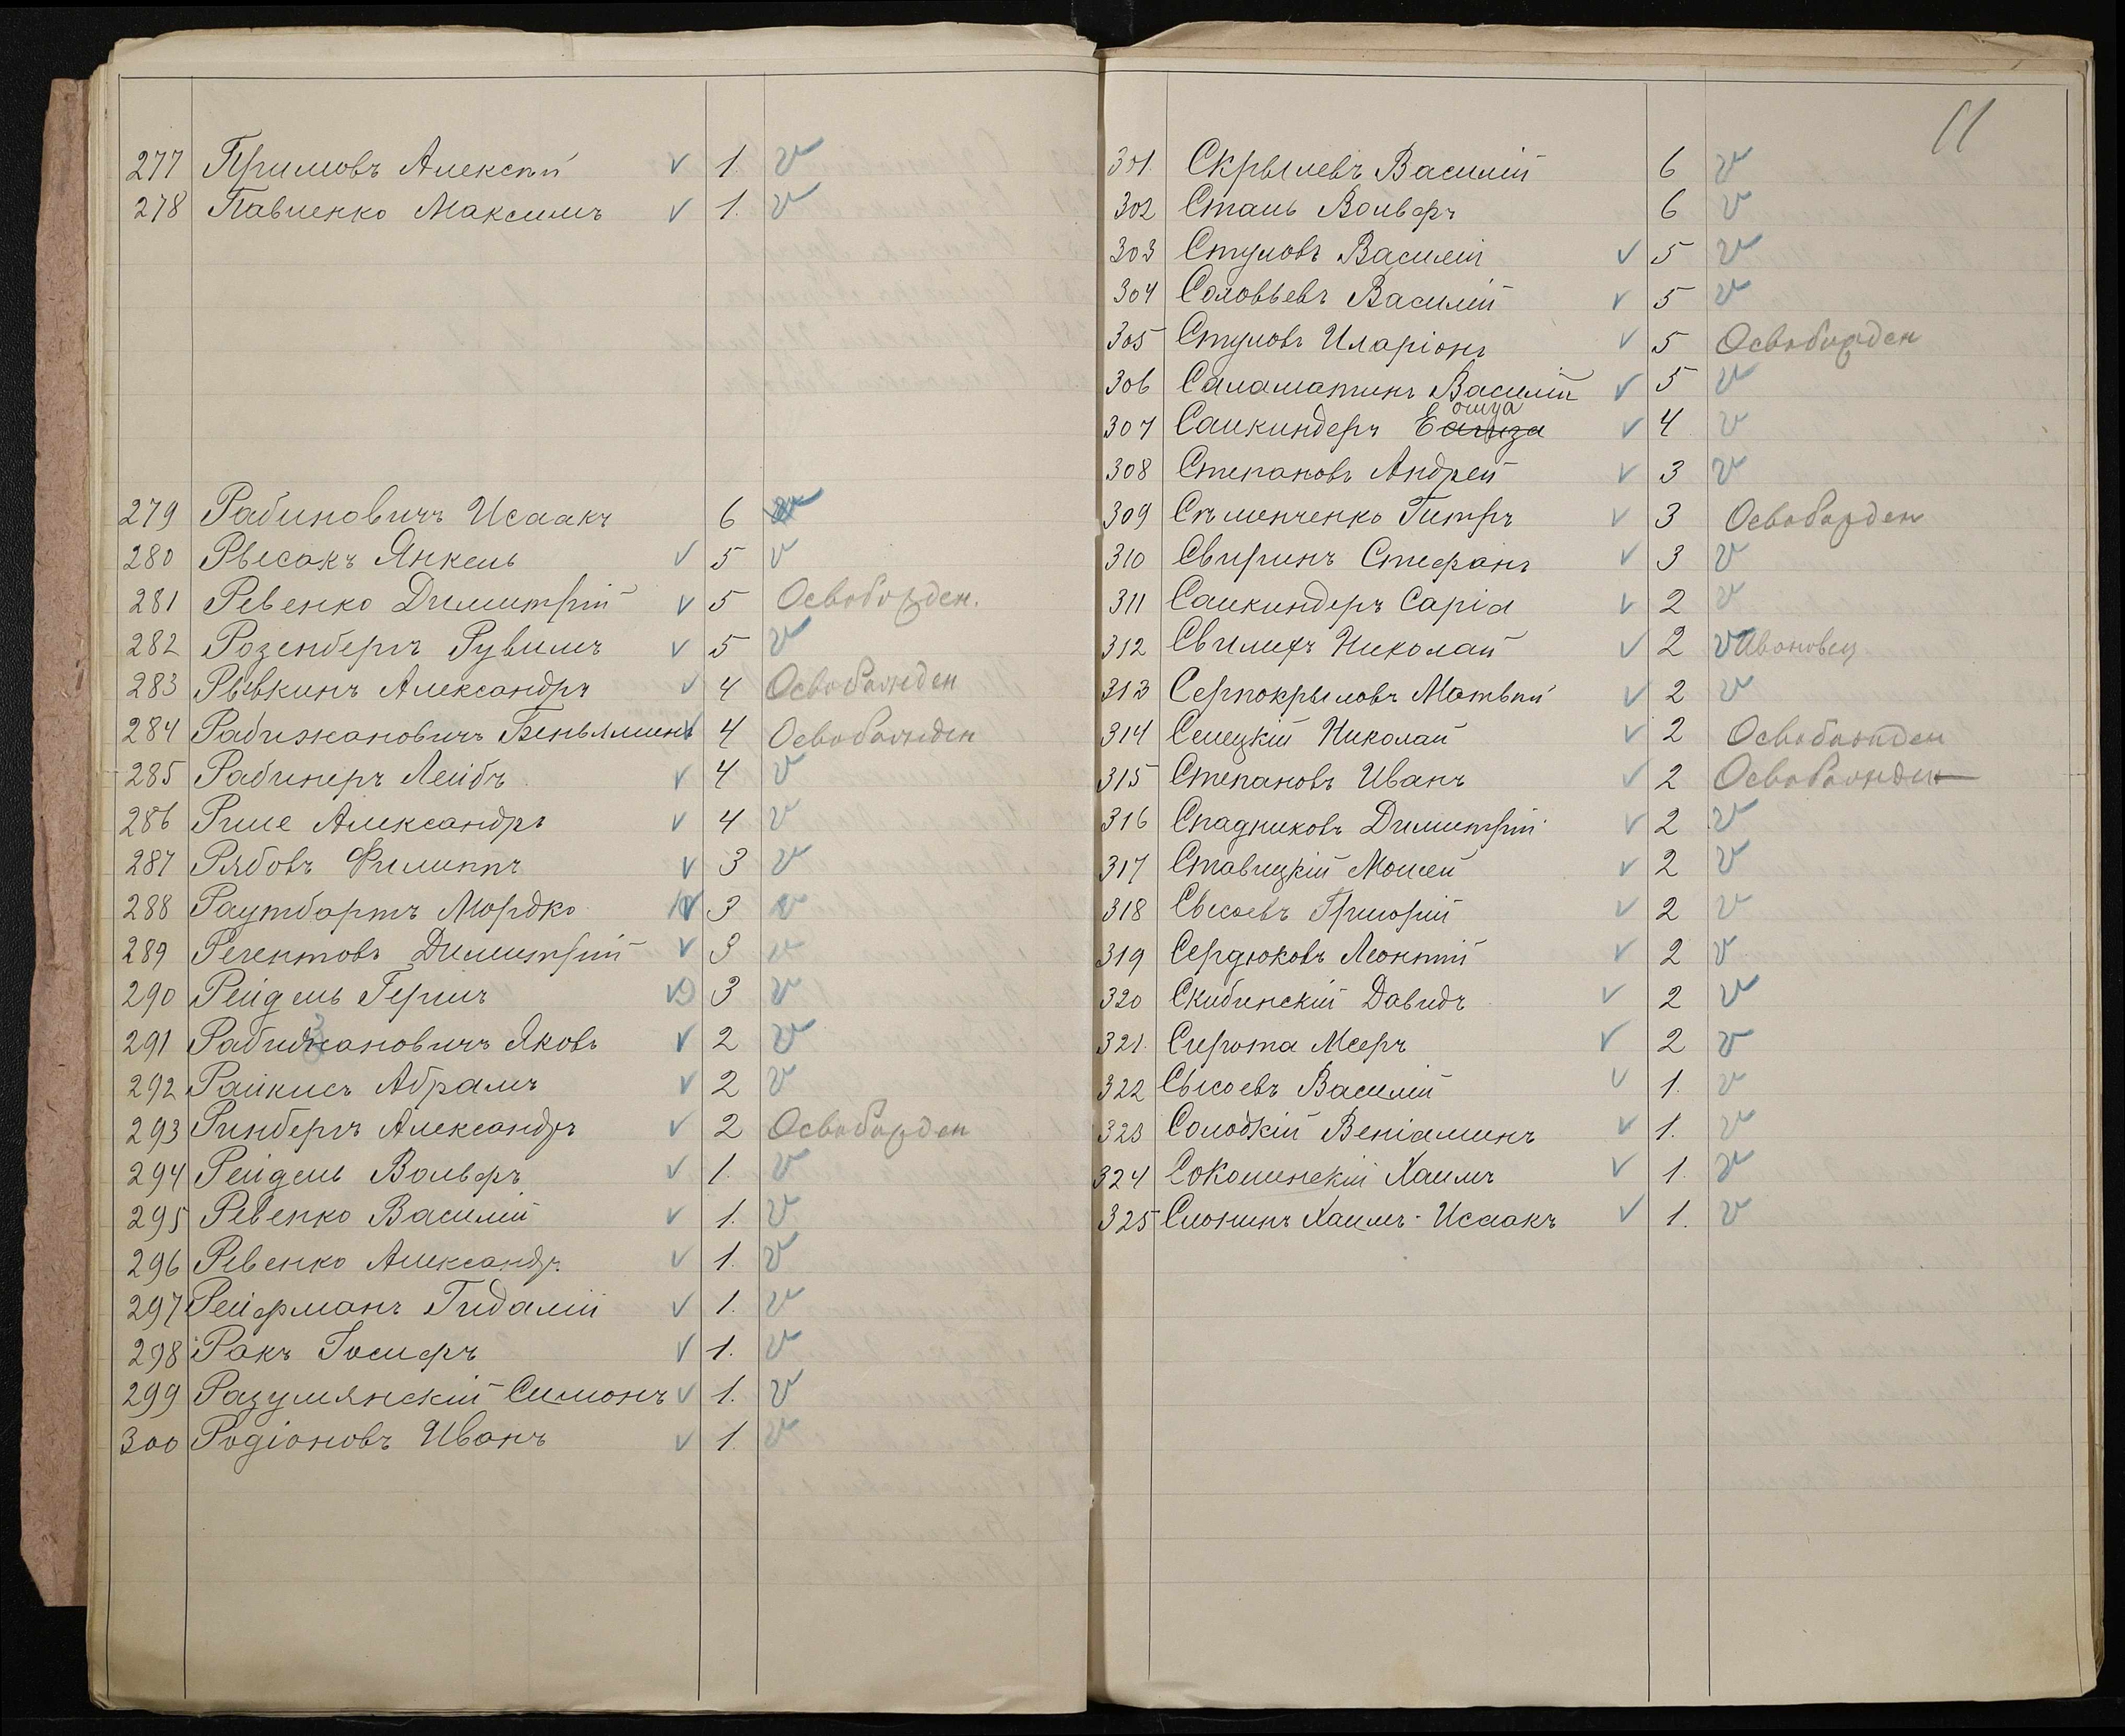 277 Примовъ Алексѣй v 1. v
278 Павленко Максимъ v 1. v
279 Рабиновичъ Исаакъ 6 v
280 Рысакъ Янкель v 5 v
281 Ревенко Димитрій v 5 Освобожден.
282 Розенбергъ Рувимъ v 5 v
283 Рывкинъ Александръ v 4 Освобожден
284 Рабижановичъ Беньяминъ v 4 Освобожден
285 Рабинеръ Лейбъ v 4 v
286 Александръ v 4 v
287 Рябовъ Филиппъ v 3 v
288 Раутбортъ Мордко v 3 v
289 Регентовъ Димитрій v 3 v
290 Рейдель Гершъ v 3 v
291 Яковъ v 2 v
292 Райкисъ Абрамъ v 2 v
293 Ринбергъ Александръ v 2 Освобожден
294 Рейдель Вольфъ v 1. v
295 Ревенко Василій v 1. v
296 Ревенко Александръ v 1. v
297 Рейфманъ Гидалій v 1. v
298 Ракъ Іосифъ v 1. v
299 Разумянскій Симонъ v 1. v
300 Родіоновъ Иванъ v 1. v
11
301. Скрылевъ Василій 6 v
302 Сталь Вольфъ 6 v
303 Стуловъ Василій v 5 v
304 Соловьевъ Василій v 5 v
305 Стуловъ Иларіонъ v 5 Освобожден
306 Саламатинъ Василій v 5 v
307 Салкиндеръ v 4 v
308 Степановъ Андрей v 3 v
309 Сѣменченко Питръ v 3 Освобожден
310 Свиринъ Стефанъ v 3 v
311 Салкиндеръ Сарід v 2 v
312 Николай v 2 v
313 Серпокрыловъ Матвѣй v 2 v
314 Селецкій Николай v 2 Освобожден
315 Степановъ Иванъ v 2 Освобожден
316 Сладниковъ Димитрій v 2 v
317 Ставицкій Мошей v 2 v
318 Сысоевъ Григорій v 2 v
319 Сердюковъ Леонтій v 2 v
320 Скибинскій Давидъ v 2 v
321. Сирота Мееръ v 2 v
322 Сысоевъ Василій v 1. v
323 Солодкій Веніаминъ v 1. v
324 Соколинскій Хаимъ v 1. v
325 Слонинъ Хаимъ-Исаакъ v 1. v